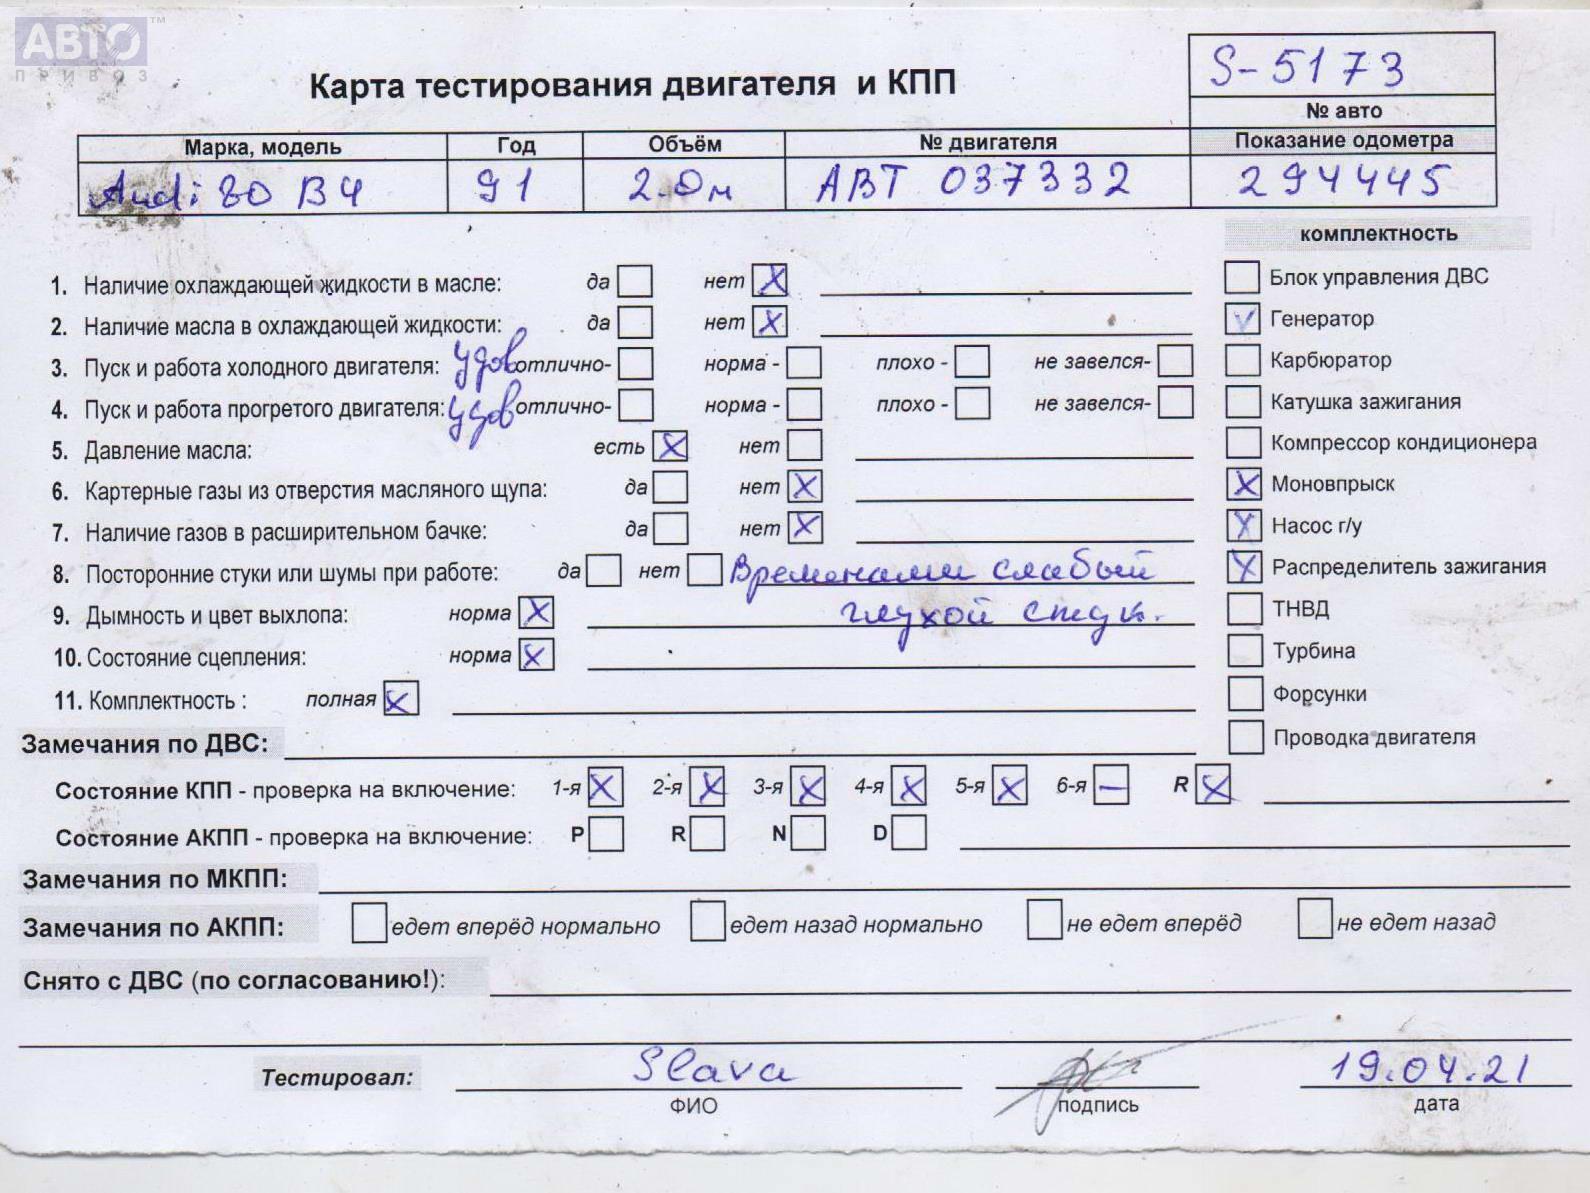 АВТО ТМ
ПРИВОЗ
S-5173
Карта тестирования двигателя и КПП
№ авто
Марка, модель Год Объём № двигателя Показание одометра
Audi 80 B4 91 2.0м ABT 037332 294445
комплектность
1. Наличие охлаждающей жидкости в масле: да нет X
Блок управления ДВС
2. Наличие масла в охлаждающей жидкости: да нет X
V Генератор
3. Пуск и работа холодного двигателя: удов отлично- норма - плохо - не завелся-
Карбюратор
4. Пуск и работа прогретого двигателя: удов отлично- норма - плохо - не завелся-
Катушка зажигания
5. Давление масла: есть X нет
Компрессор кондиционера
6. Картерные газы из отверстия масляного щупа: да нет X
X Моновпрыск
7. Наличие газов в расширительном бачке: да нет X
X Насос г/у
8. Посторонние стуки или шумы при работе: да нет Временами слабый
X Распределитель зажигания
9. Дымность и цвет выхлопа: норма X глухой стук.
ТНВД
10. Состояние сцепления: норма X
Турбина
11. Комплектность : полная X
Форсунки
Замечания по ДВС:
Проводка двигателя
Состояние КПП - проверка на включение: 1-я X 2-я X 3-я X 4-я X 5-я X 6-я — R X
Состояние АКПП - проверка на включение: P R N D
Замечания по МКПП:
Замечания по АКПП: едет вперёд нормально едет назад нормально не едет вперёд не едет назад
Снято с ДВС (по согласованию!):
Тестировал: Slava 19.04.21
ФИО подпись дата